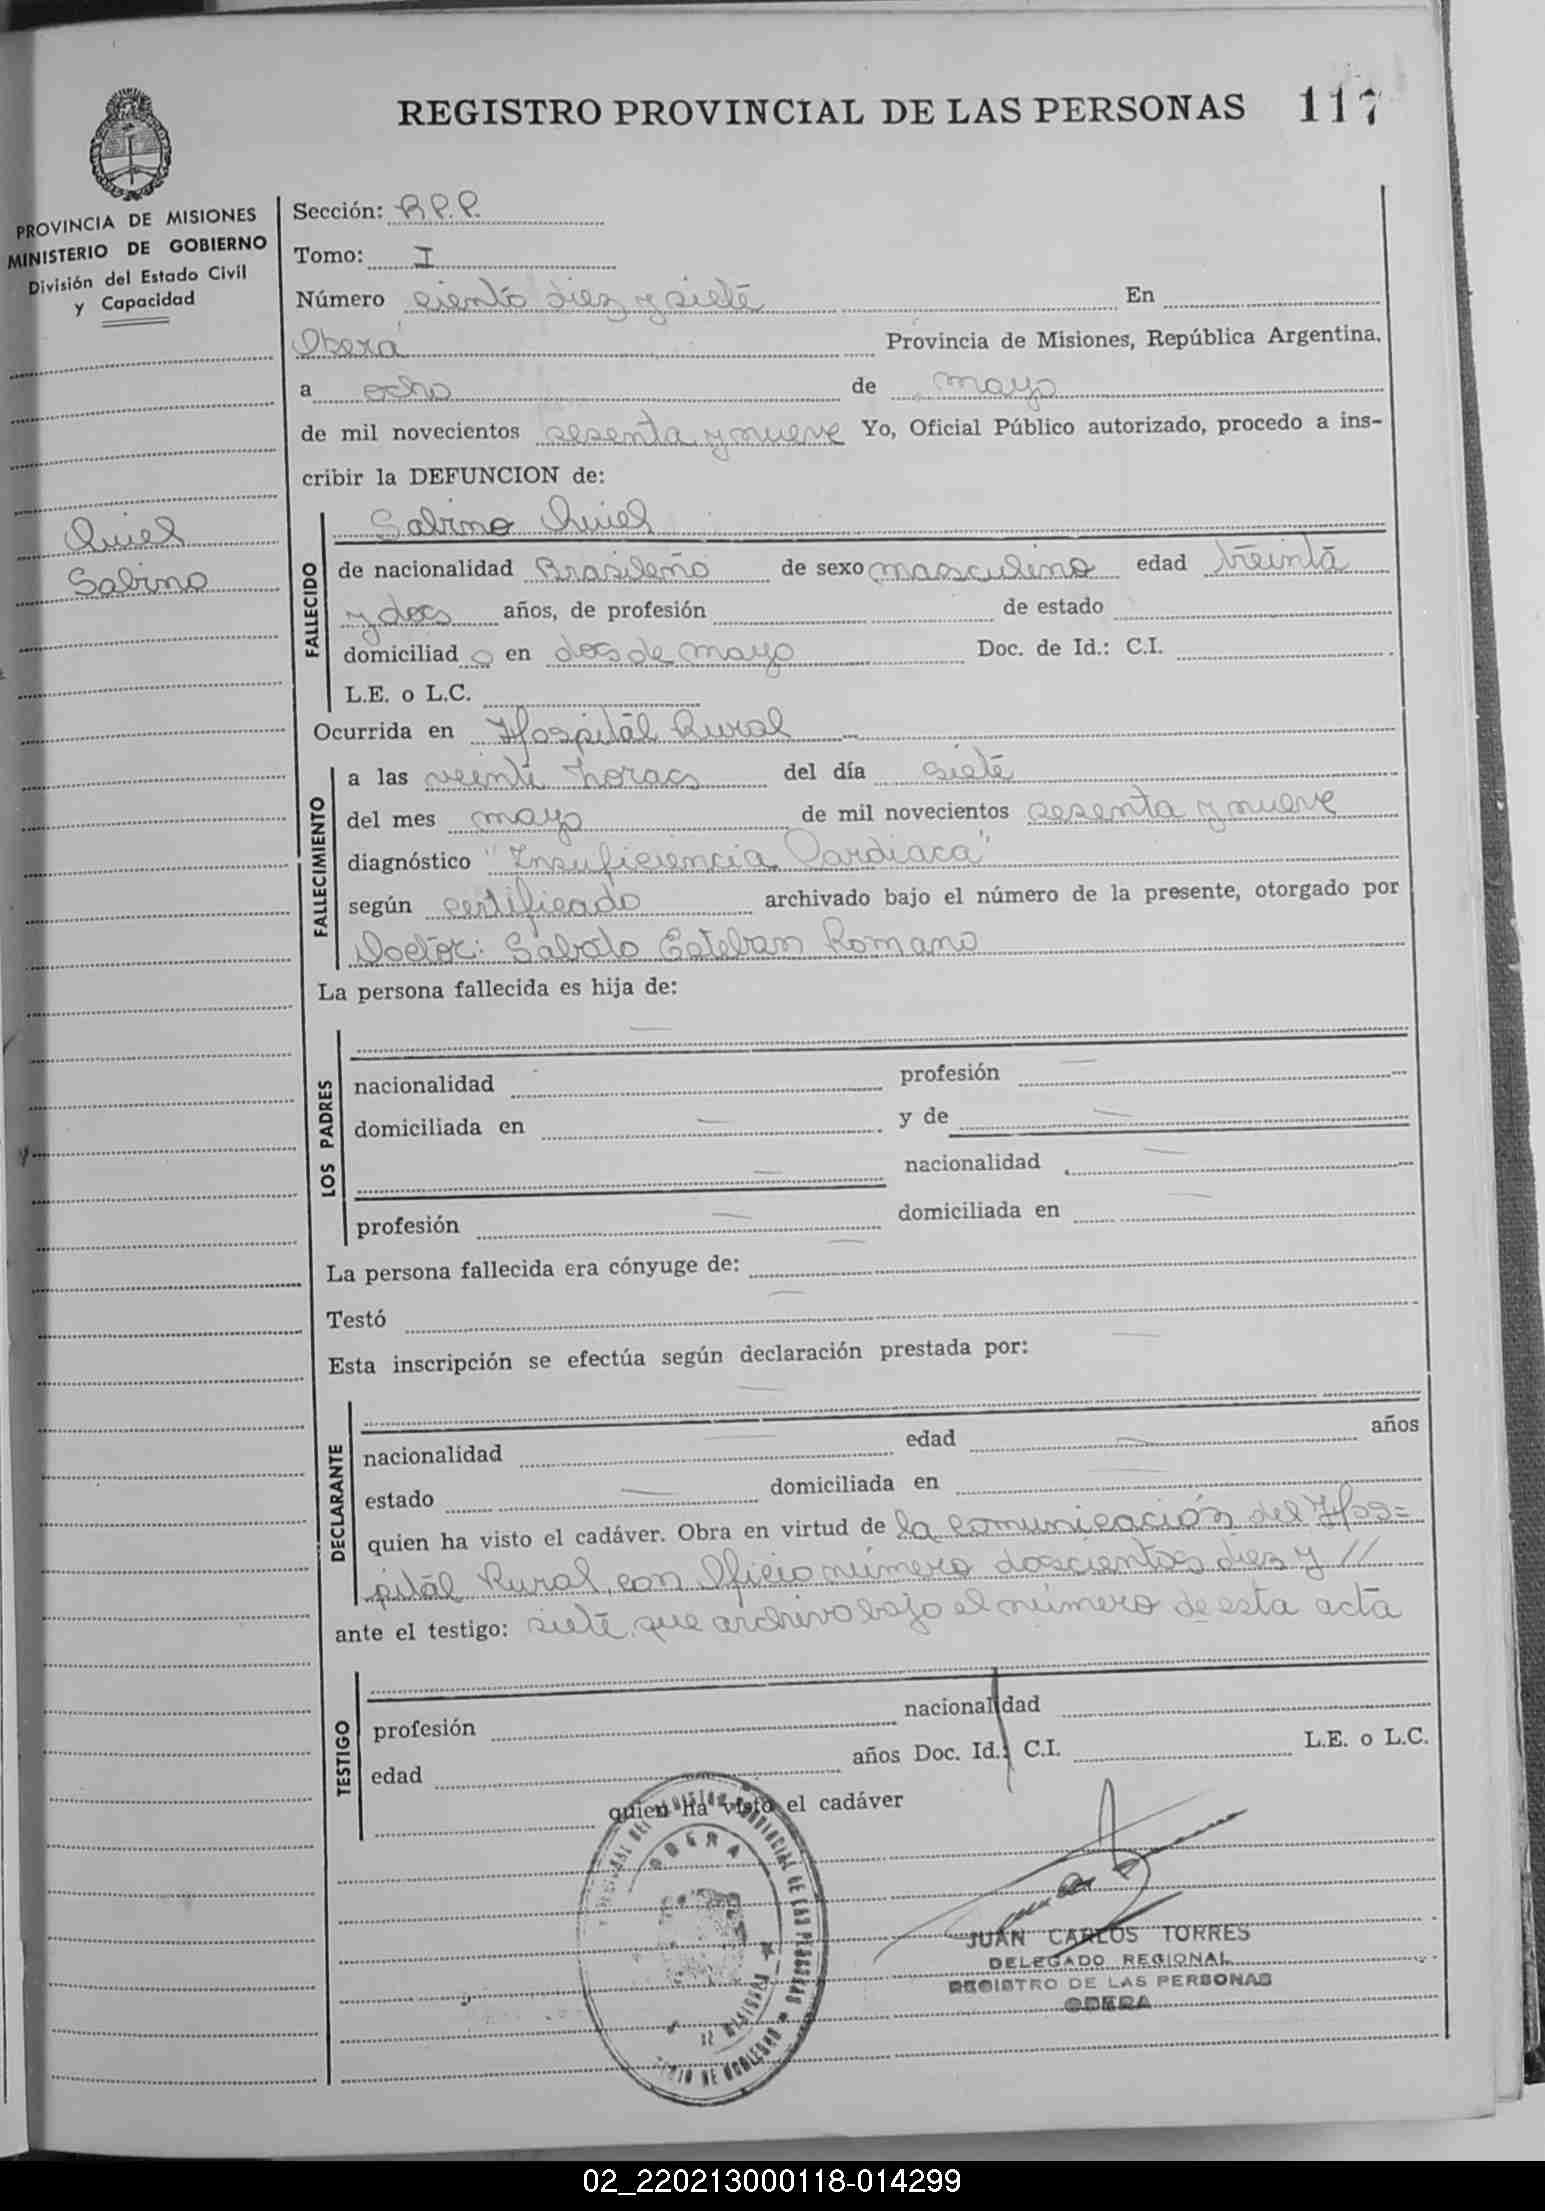 REGISTRO PROVINCIAL DE LAS PERSONAS 117
PROVINCIA DE MISIONES
MINISTERIO DE GOBIERNO
División del Estado Civil
y Capacidad
Quiel
Sabino
Sección: R.P.P.
Tomo: I
Número ciento diez y siete En
Oberá Provincia de Misiones, República Argentina,
a ocho de mayo
de mil novecientos sesenta y nueve Yo, Oficial Público autorizado, procedo a ins-
cribir la DEFUNCION de:
FALLECIDO
Sabino Quiel
de nacionalidad Brasileño de sexo masculino edad treinta
y dos años, de profesión de estado
domiciliad o en dos de mayo Doc. de Id.: C.I.
L.E. o L.C.
Ocurrida en Hospital Rural
FALLECIMIENTO
a las veinte horas del día siete
del mes mayo de mil novecientos sesenta y nueve
diagnóstico "Insuficiencia Cardiaca"
según certificado archivado bajo el número de la presente, otorgado por
Doctor: Sabato Esteban Romano
La persona fallecida es hija de:
LOS PADRES
nacionalidad profesión
domiciliada en y de
nacionalidad
profesión domiciliada en
La persona fallecida era cónyuge de:
Testó
Esta inscripción se efectúa según declaración prestada por:
DECLARANTE
nacionalidad edad años
estado domiciliada en
quien ha visto el cadáver. Obra en virtud de la comunicación del Hos=
pital Rural, con Oficio número doscientos diez y //
ante el testigo: siete, que archivo bajo el número de esta acta
TESTIGO
profesión nacionalidad
edad años Doc. Id.: C.I. L.E. o L.C.
quien ha visto el cadáver
OBERA
JUAN CARLOS TORRES
DELEGADO REGIONAL
REGISTRO DE LAS PERSONAS
OBERA
02_220213000118-014299